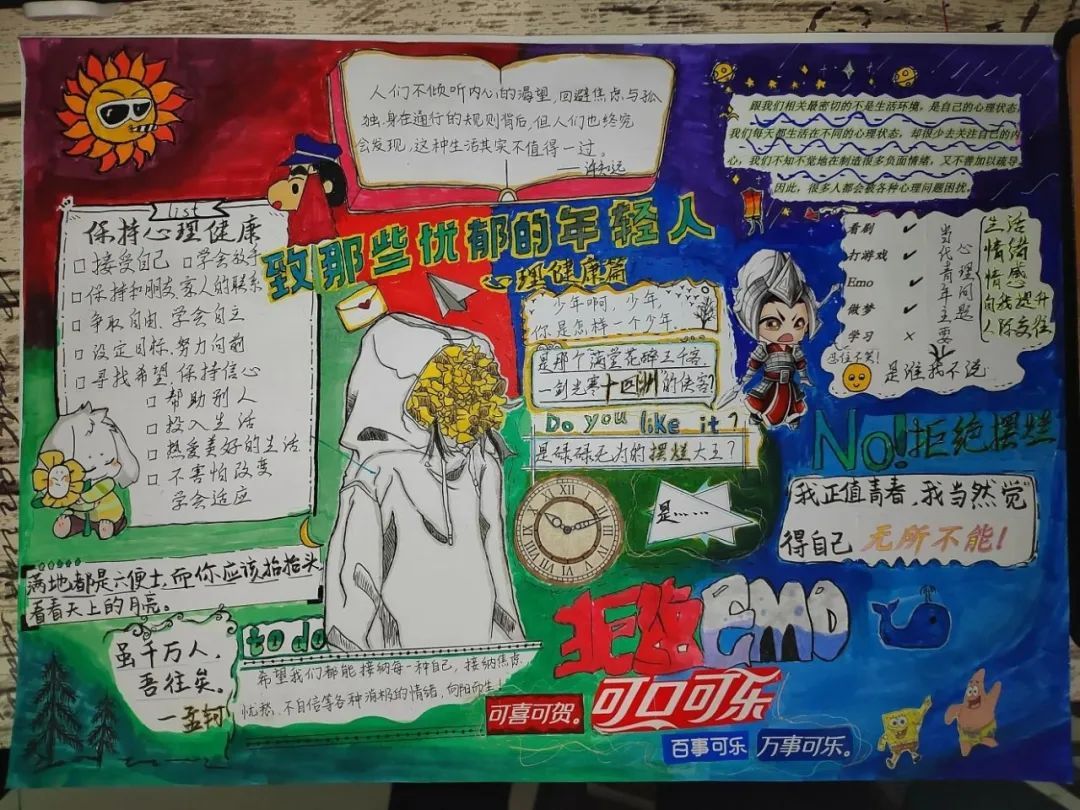 人们不倾听内心的渴望,回避焦虑与孤
独,身在通行的规则背后,但人们也终究
会发现,这种生活其实不值得一过。
跟我们相关最密切的不是生活环境,是自己的心理状态,
我们每天都生活在不同的心理状态,却很少去关注自己的内
心,我们不知不觉在制造很多负面情绪,又不善加以疏导,
因此,很多人都会被各种心理问题困扰。
致那些忧郁的年轻人
心理健康篇
list
保持心理健康
□接受自己 □学会放手
□保持和朋友家人的联系
□争取自由、学会自立
□设定目标、努力向前
□寻找希望 保持信心
□帮助别人
□投入生活
□热爱美好的生活
□不害怕改变
学会适应
少年啊,少年,
你是怎样一个少年,
是那个满堂花醉三千客
一剑光寒十四州的侠客?
Do you like it?
是碌碌无为的摆烂大王?
是……
看剧 ✓
打游戏 ✓
Emo ✓
做梦 ✓
学习 ×
忍住不笑!
是谁我不说
当代青年主要
心理问题
生活
情绪
情感
自我提升
人际交往
No!拒绝摆烂
"我正值青春,我当然觉
得自己 无所不能!
满地都是六便士,而你应该抬抬头
看看天上的月亮。
虽千万人,
吾往矣。
—孟轲
to do
希望我们都能接纳每一种自己,接纳焦虑
忧愁、不自信等各种消极的情绪,向阳而生!
拒绝EMO
可喜可贺。
可口可乐
百事可乐 万事可乐。